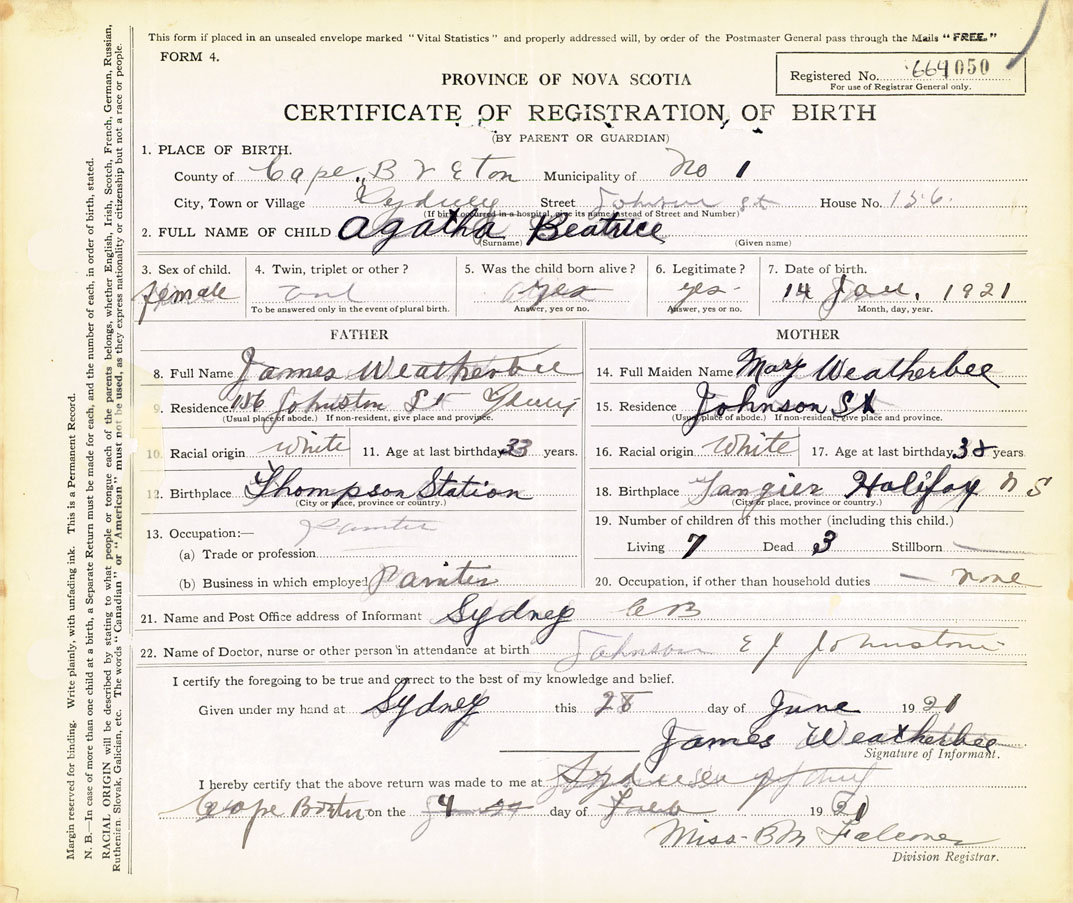 This form if placed in an unsealed envelope marked "Vital Statistics" and properly addressed will, by order of the Postmaster General pass through the Mails "FREE."
FORM 4.
Registered No. 664050
For use of Registrar General only.
PROVINCE OF NOVA SCOTIA
CERTIFICATE OF REGISTRATION OF BIRTH
(BY PARENT OR GUARDIAN)
1. PLACE OF BIRTH.
County of Cape Breton Municipality of No 1
City, Town or Village Sydney Street Johnson St House No. 156
(If birth occurred in a hospital, give its name instead of Street and Number)
2. FULL NAME OF CHILD Agatha Beatrice
(Surname) (Given name)
3. Sex of child. 4. Twin, triplet or other? 5. Was the child born alive? 6. Legitimate? 7. Date of birth.
female yes yes 14 Jan. 1921
To be answered only in the event of plural birth. Answer, yes or no. Answer, yes or no. Month, day, year.
FATHER
8. Full Name James Weatherbee
9. Residence 156 Johnston St
(Usual place of abode.) If non-resident, give place and province.
10. Racial origin white 11. Age at last birthday 33 years.
12. Birthplace Thompson Station
(City or place, province or country.)
13. Occupation:— Painter
(a) Trade or profession
(b) Business in which employed Painter
MOTHER
14. Full Maiden Name Mary Weatherbee
15. Residence Johnson St
(Usual place of abode.) If non-resident, give place and province.
16. Racial origin White 17. Age at last birthday 38 years.
18. Birthplace Tangier Halifax N S
(City or place, province or country.)
19. Number of children of this mother (including this child.)
Living 7 Dead 3 Stillborn —
20. Occupation, if other than household duties — none
21. Name and Post Office address of Informant Sydney C B
22. Name of Doctor, nurse or other person in attendance at birth Johnson E J Johnstone
I certify the foregoing to be true and correct to the best of my knowledge and belief.
Given under my hand at Sydney this 28 day of June 1921
James Weatherbee
Signature of Informant.
I hereby certify that the above return was made to me at Sydney
Cape Breton on the 4 day of 1921
Miss B M Falconer
Division Registrar.
Margin reserved for binding. Write plainly, with unfading ink. This is a Permanent Record.
N. B.—In case of more than one child at a birth, a Separate Return must be made for each, and the number of each, in order of birth, stated.
RACIAL ORIGIN will be described by stating to what people or tongue each of the parents belongs, whether English, Irish, Scotch, French, German, Russian,
Ruthenien, Slovak, Galician, etc. The words "Canadian" or "American" must not be used, as they express nationality or citizenship but not a race or people.